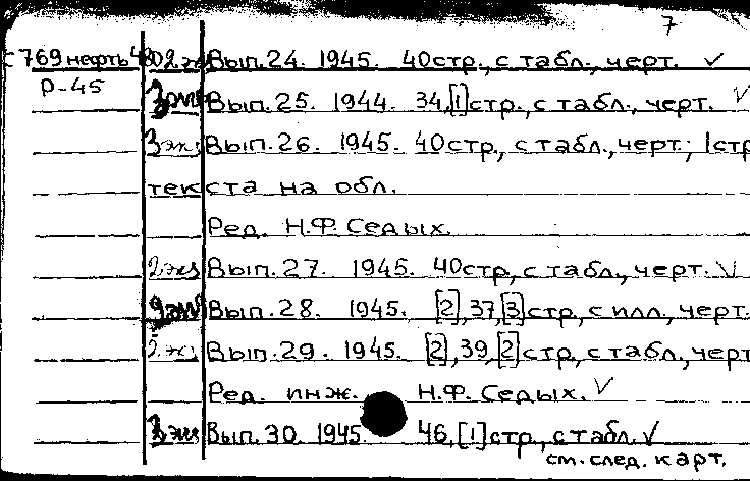 7
С769 нефть 480 2.эк Вып.24. 1945. 40стр., с табл., черт. ✓
Р-45 Вып.25. 1944. 34,[1]стр., с табл., черт. ✓
3 экз Вып.26. 1945. 40стр., с табл., черт.; 1стр
текста на обл.
Ред. Н.Ф. Седых.
2 экз Вып.27. 1945. 40стр., с табл., черт. ✓
Вып.28. 1945. [2],37,[3]стр., с илл., черт.
2.экз Вып.29. 1945. [2],39,[2]стр., с табл., черт
Ред. инж. Н.Ф. Седых. ✓
3 экз Вып.30. 1945 46,[1]стр., с табл. ✓
см. след. карт.